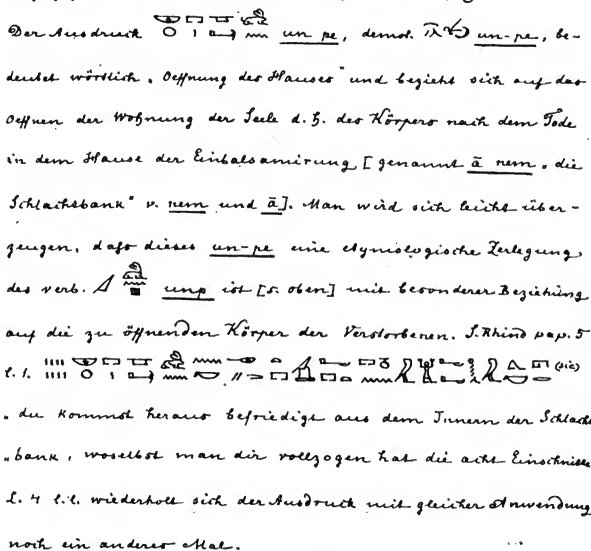 Der Ausdruck un pe, demot. un-pe, be-
deutet wörtlich „Oeffnung des Hauses“ und bezieht sich auf das
Oeffnen der Wohnung der Seele d. h. des Körpers nach dem Tode
in dem Hause der Einbalsamirung [genannt ā nem „die
Schlachtbank“ v. nem und ā]. Man wird sich leicht über-
zeugen, dafs dieses un-pe eine etymologische Zerlegung
des verb. unp ist [s. oben] mit besonderer Beziehung
auf die zu öffnenden Körper der Verstorbenen. S. Rhind pap. 5
l. 1. (sic)
„du kommst heraus befriedigt aus dem Innern der Schlacht
„bank, woselbst man dir vollzogen hat die acht Einschnitte
L. 4 l.l. wiederholt sich der Ausdruck mit gleicher Anwendung
noch ein anderes Mal.